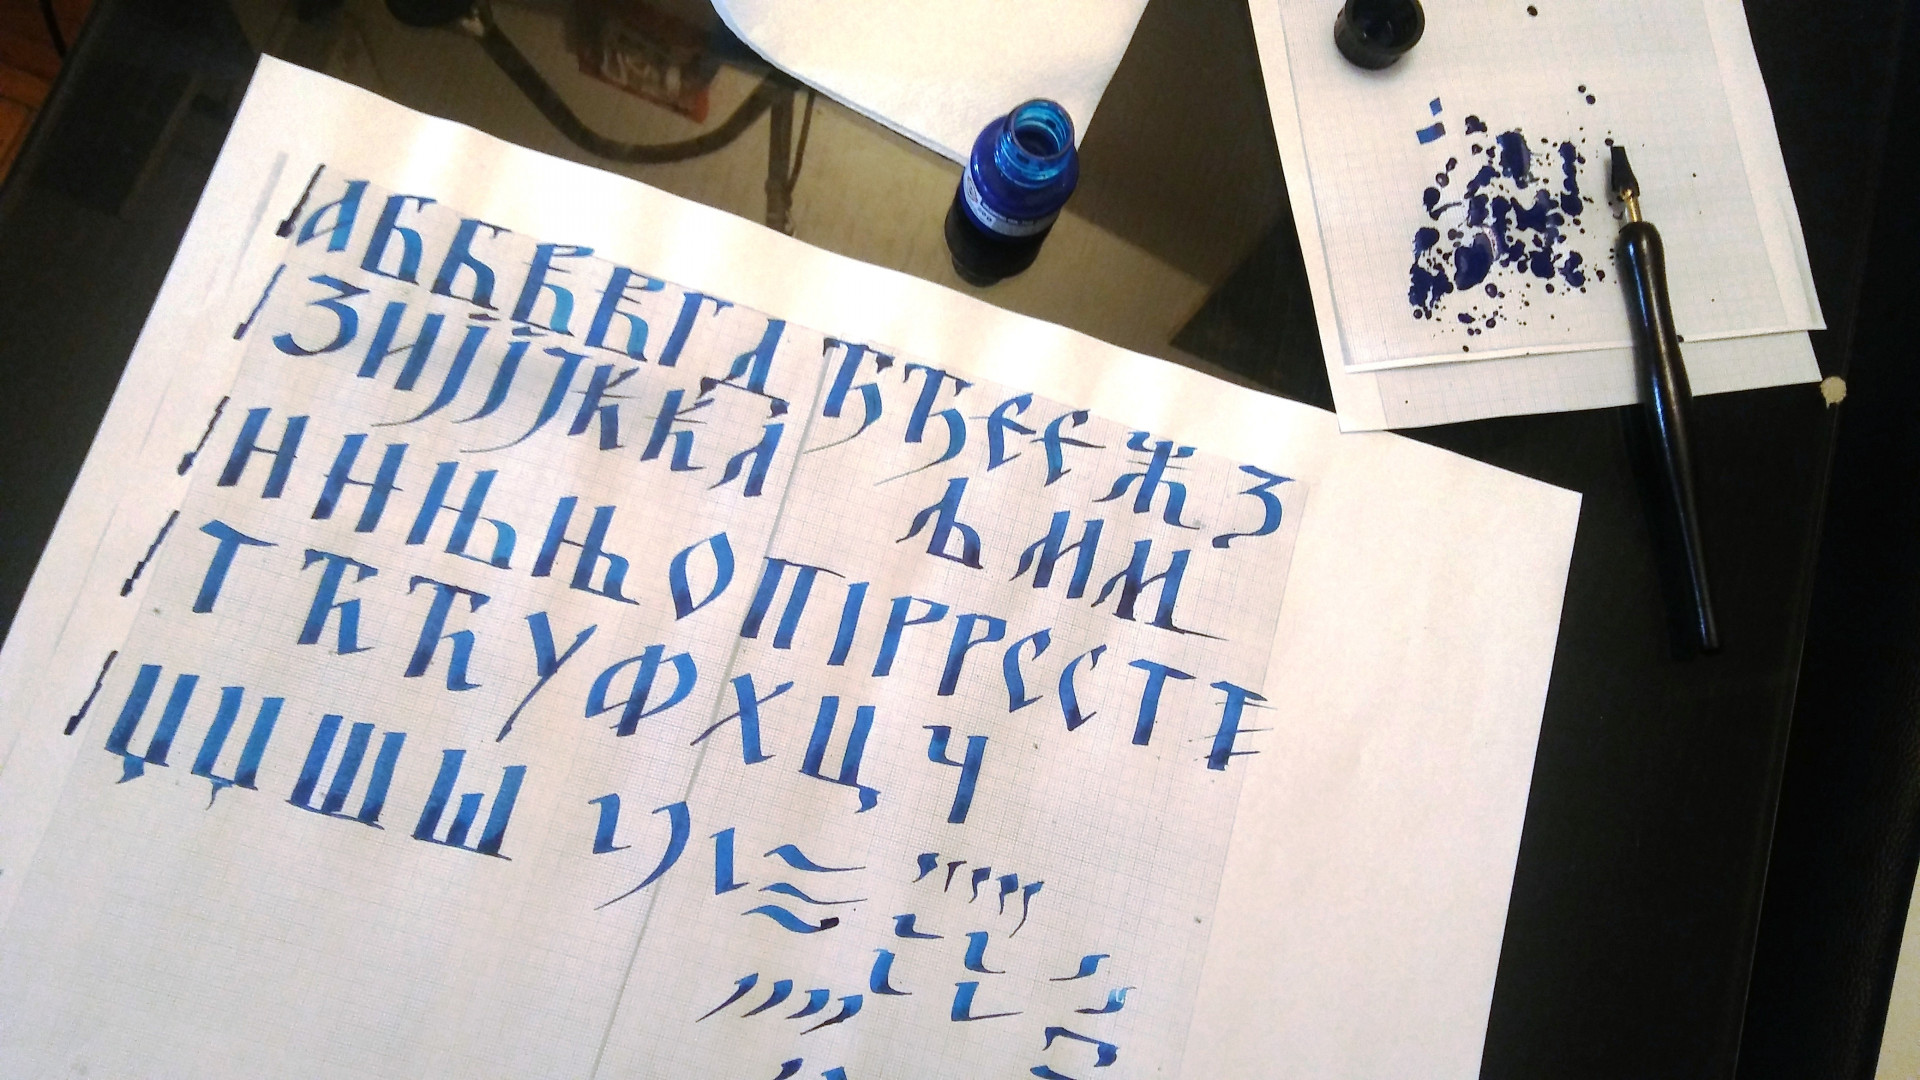 А Б Б В В Г Д Ђ Ђ Е Е Ж З
З И Ј Ј Ј К К Л Љ М М
Н Н Њ Њ О П І Р Р С С Т Т
Т Ћ Ћ У Ф Х Ц Ч
Џ Џ Ш Ш